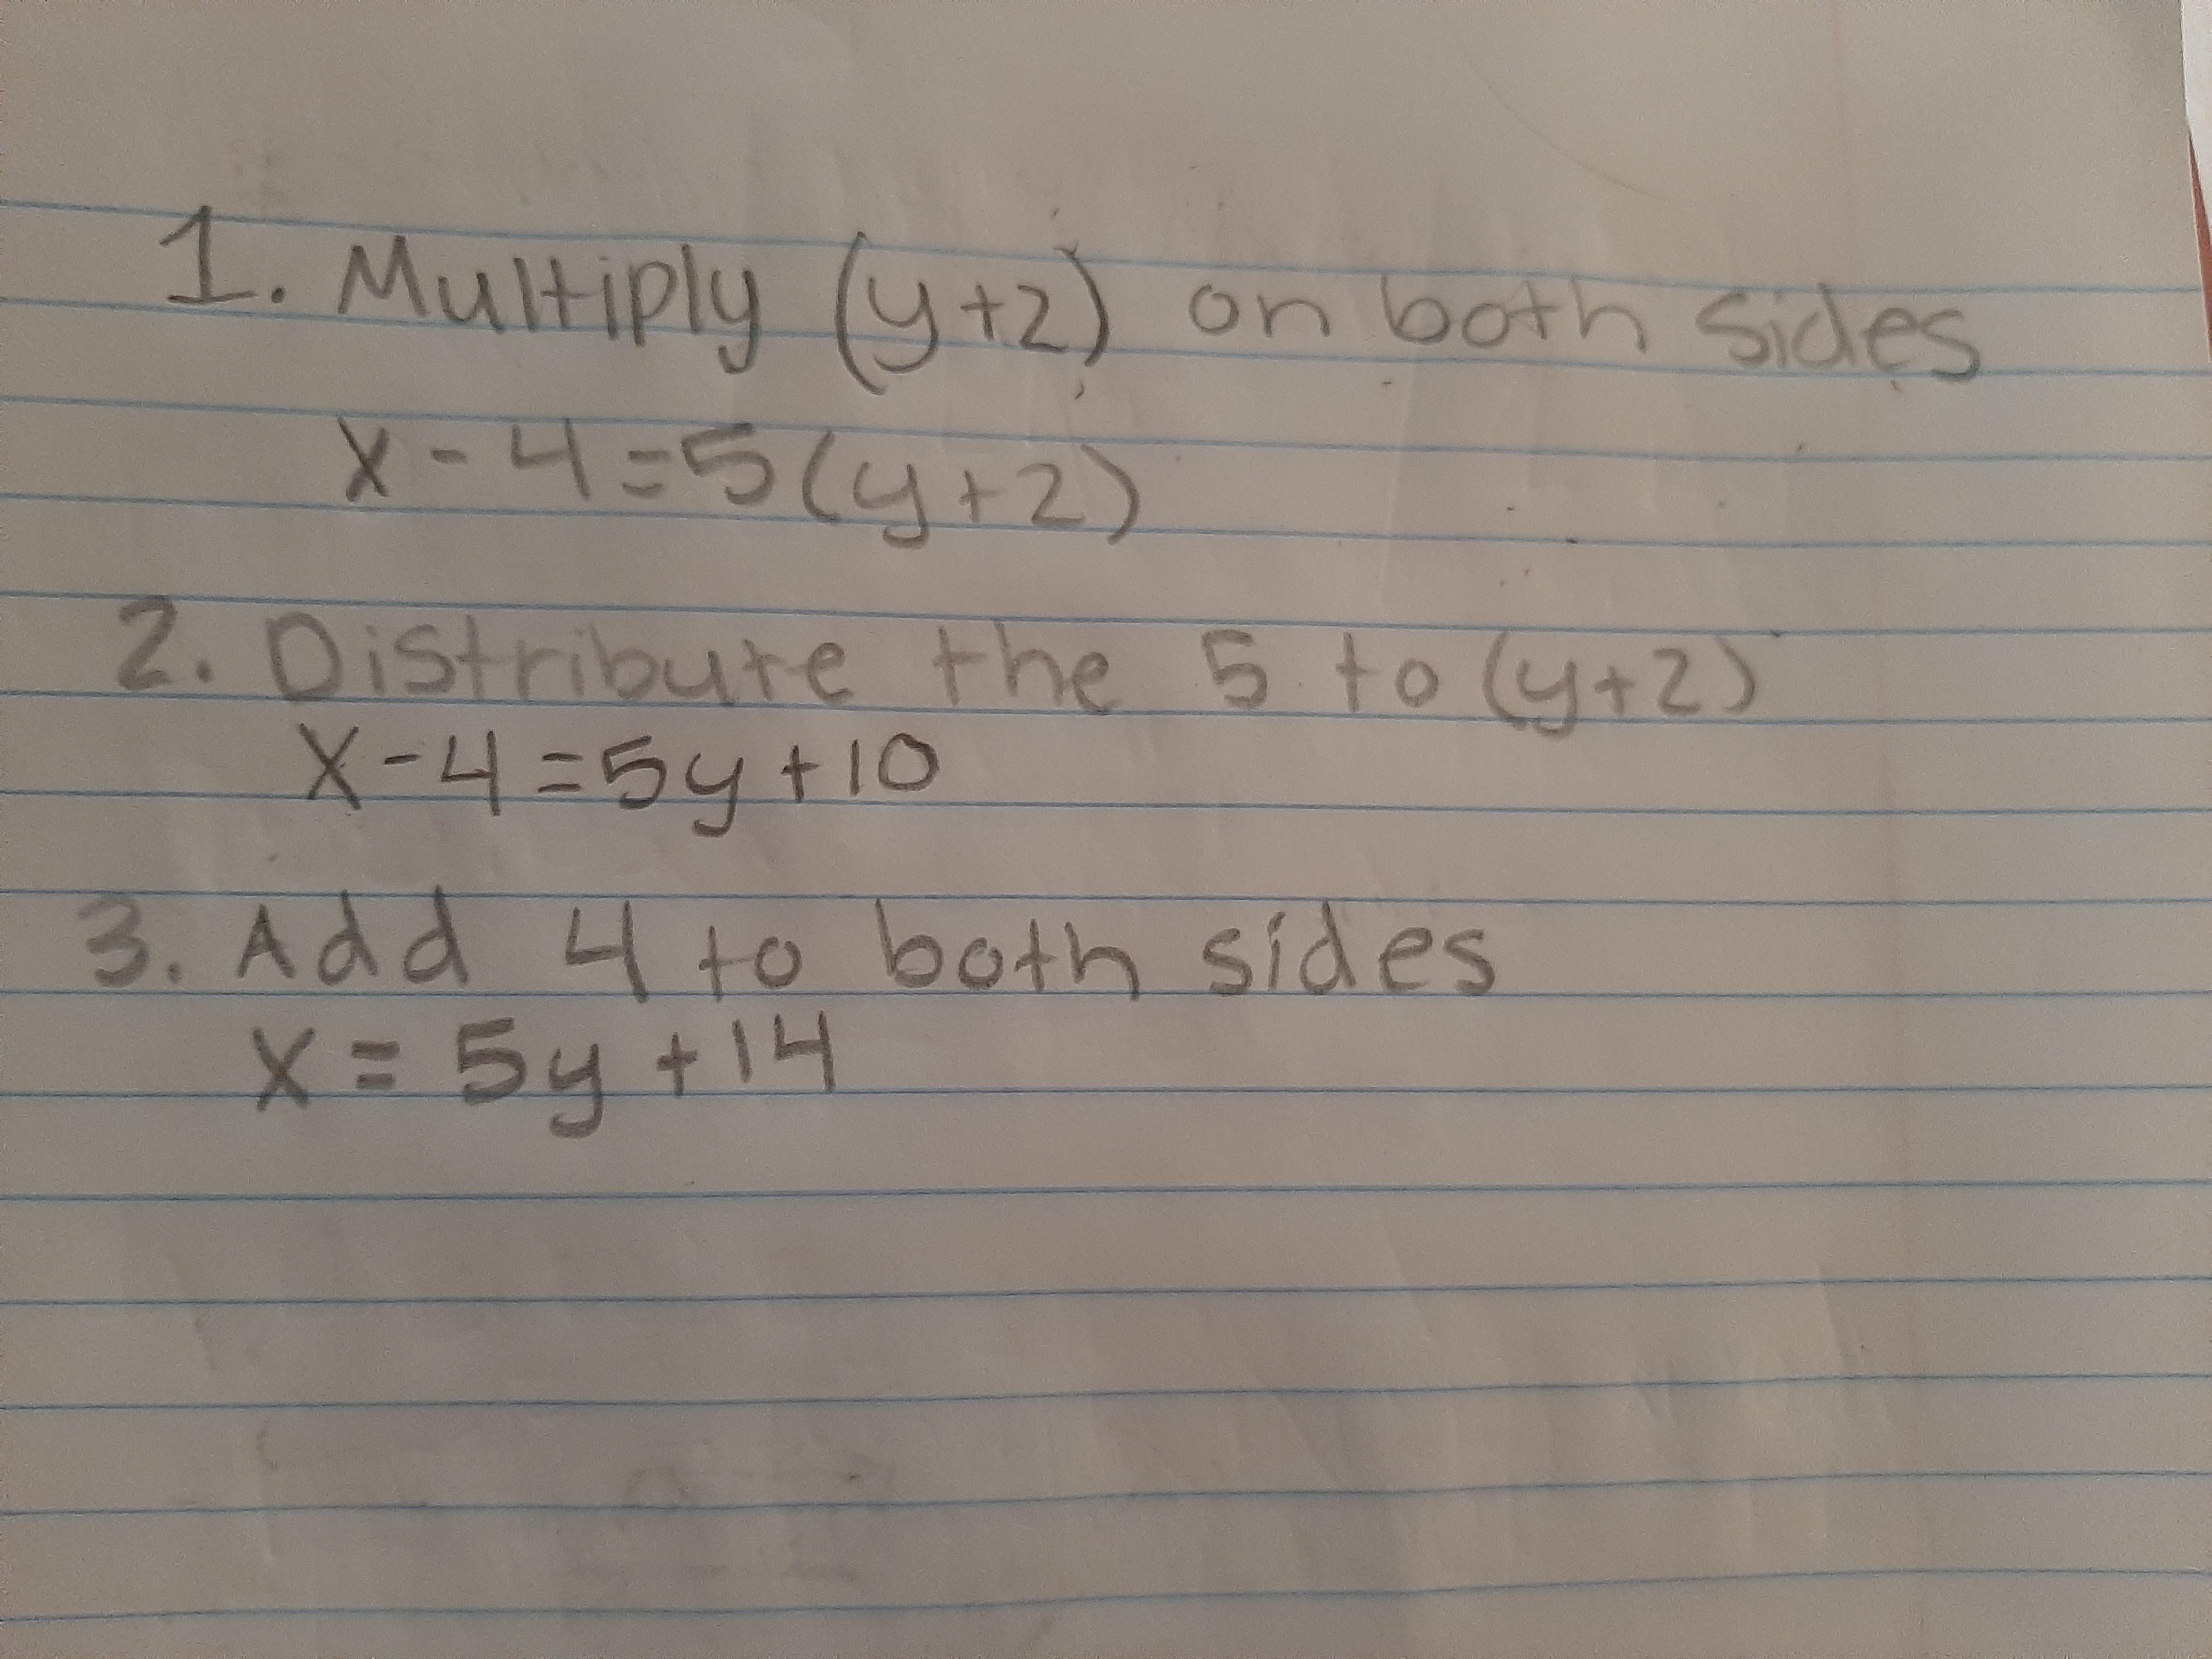 1. Multiply (y+2) on both sides
x - 4 = 5(y+2)
2. Distribute the 5 to (y+2)
x - 4 = 5y + 10
3. Add 4 to both sides
x = 5y + 14